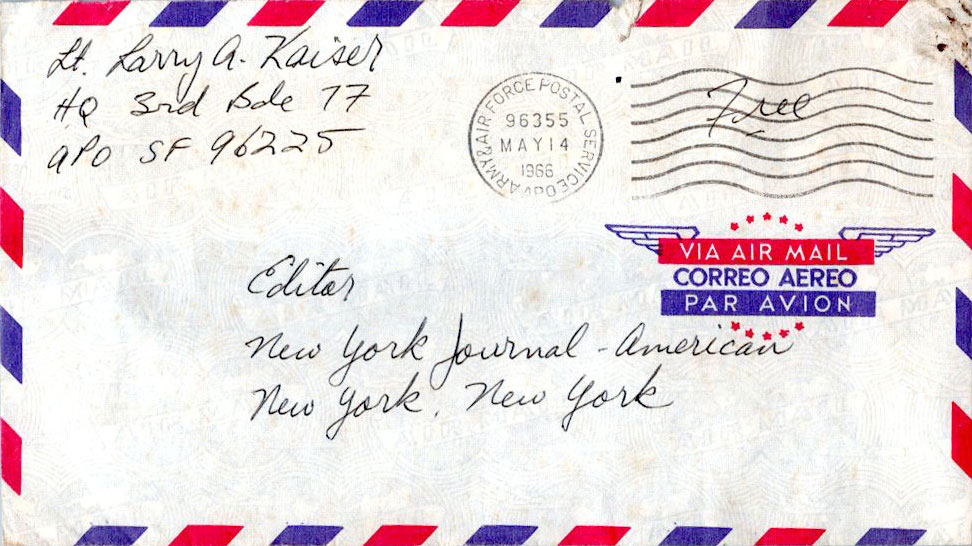 Lt. Larry A. Kaiser
HQ 3rd Bde TF
APO SF 96225
ARMY & AIR FORCE POSTAL SERVICE APO
96355
MAY 14
1966
Free
VIA AIR MAIL
CORREO AEREO
PAR AVION
Editor
New York Journal-American
New York, New York